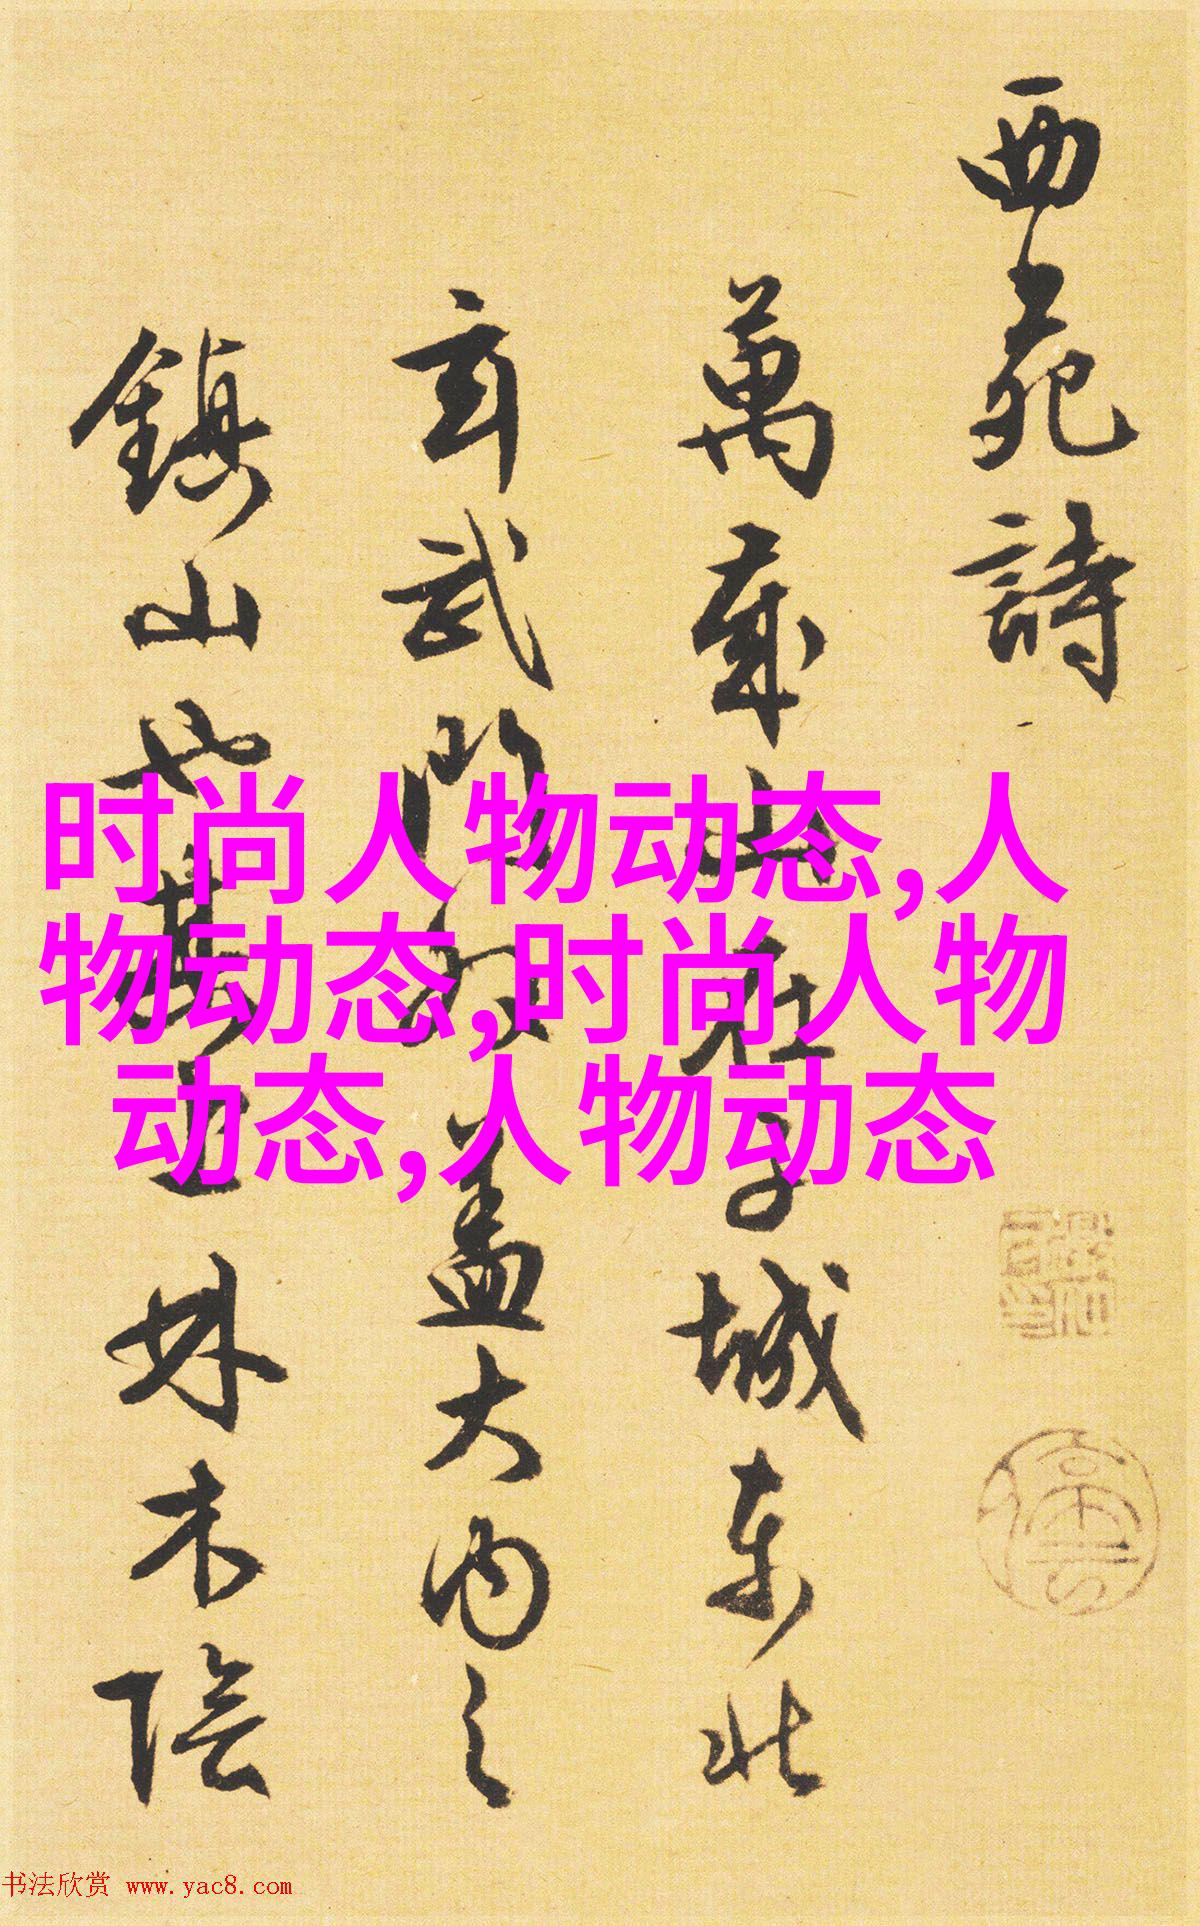 西苑詩
萬歲山在子城東北
玄武門外蓋大內之
鎮山也其上林木陰
时尚人物动态,人
物动态,时尚人物
动态,人物动态
书法欣赏 www.yac8.com